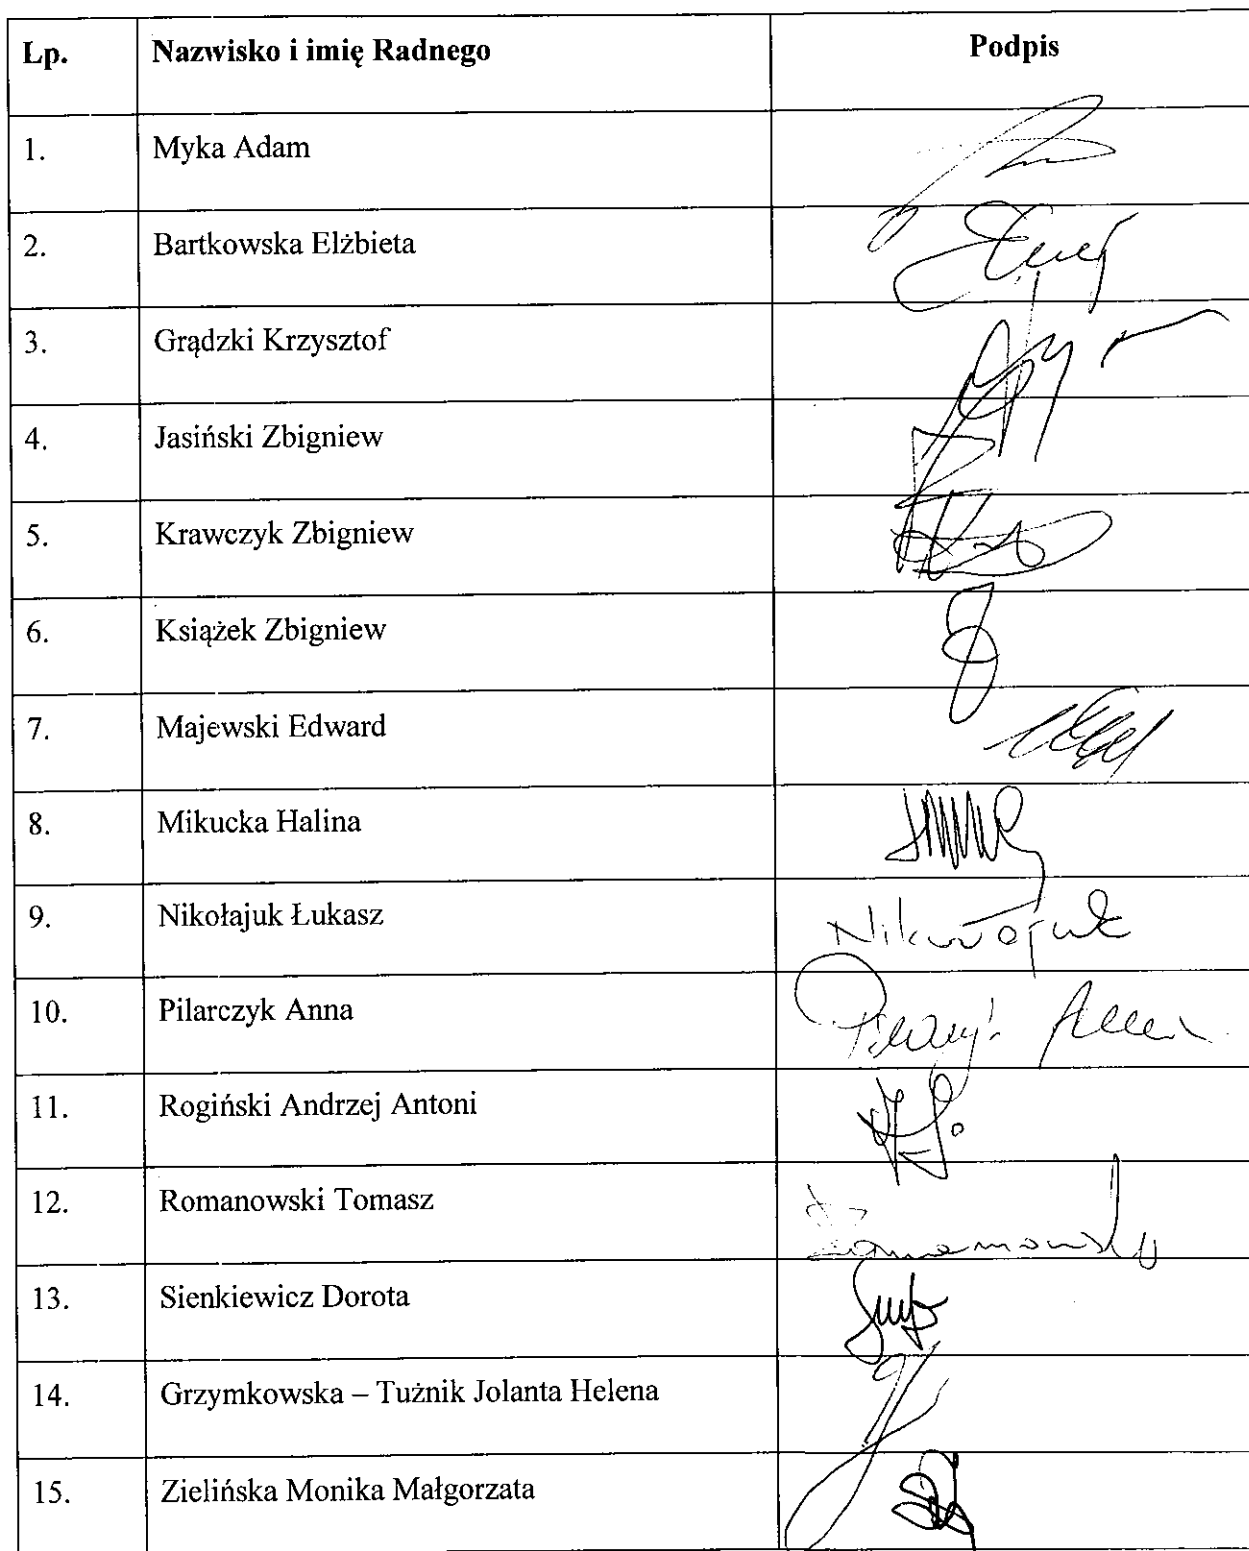 Lp. Nazwisko i imię Radnego Podpis
1. Myka Adam
2. Bartkowska Elżbieta
3. Grądzki Krzysztof
4. Jasiński Zbigniew
5. Krawczyk Zbigniew
6. Książek Zbigniew
7. Majewski Edward
8. Mikucka Halina
9. Nikołajuk Łukasz Nikołajuk
10. Pilarczyk Anna
11. Rogiński Andrzej Antoni
12. Romanowski Tomasz
13. Sienkiewicz Dorota
14. Grzymkowska – Tużnik Jolanta Helena
15. Zielińska Monika Małgorzata